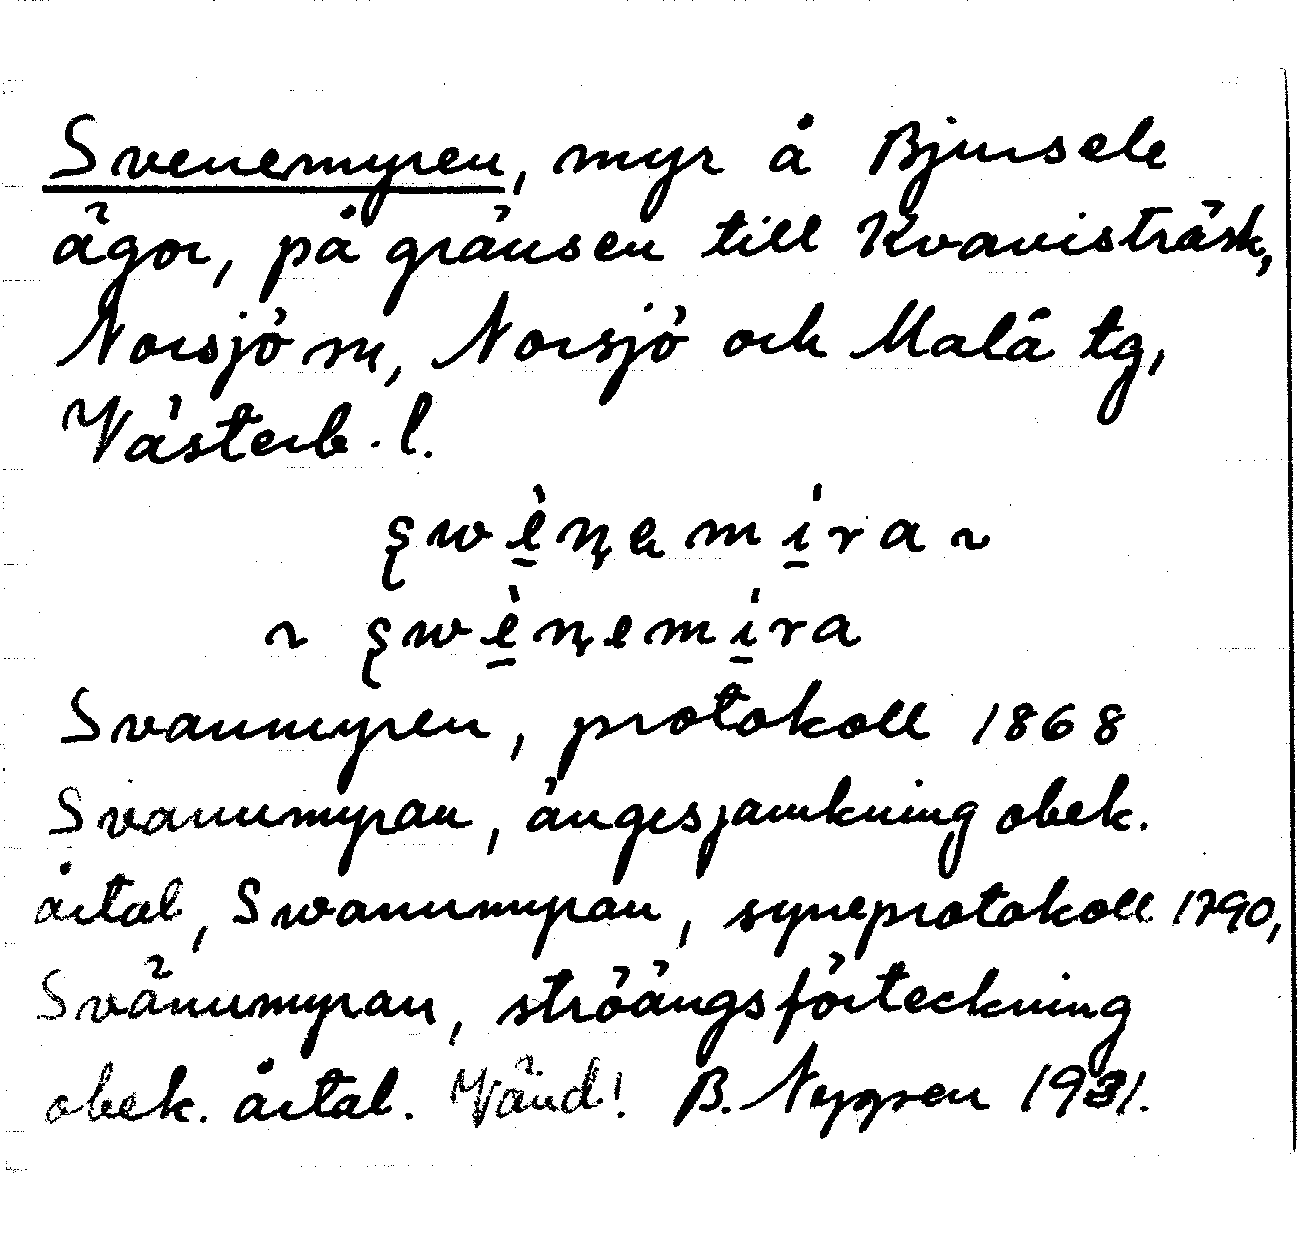 Svenemyren, myr å Bjursele
ägor, på gränsen till Kvavisträsk,
Norsjö sn, Norsjö och Malå tg,
Västerb. l.
~
~
Svanmyren, protokoll 1868
Svanumyran, ängesjämkning obek.
årtal, Swanumyran, syneprotokoll 1790,
Svänumyran, ströängsförteckning
obek. årtal. Vänd! B. Nygren 1931.